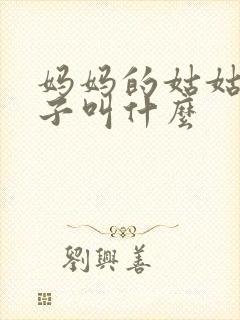 妈妈的姑姑
子叫什麼
劉興善